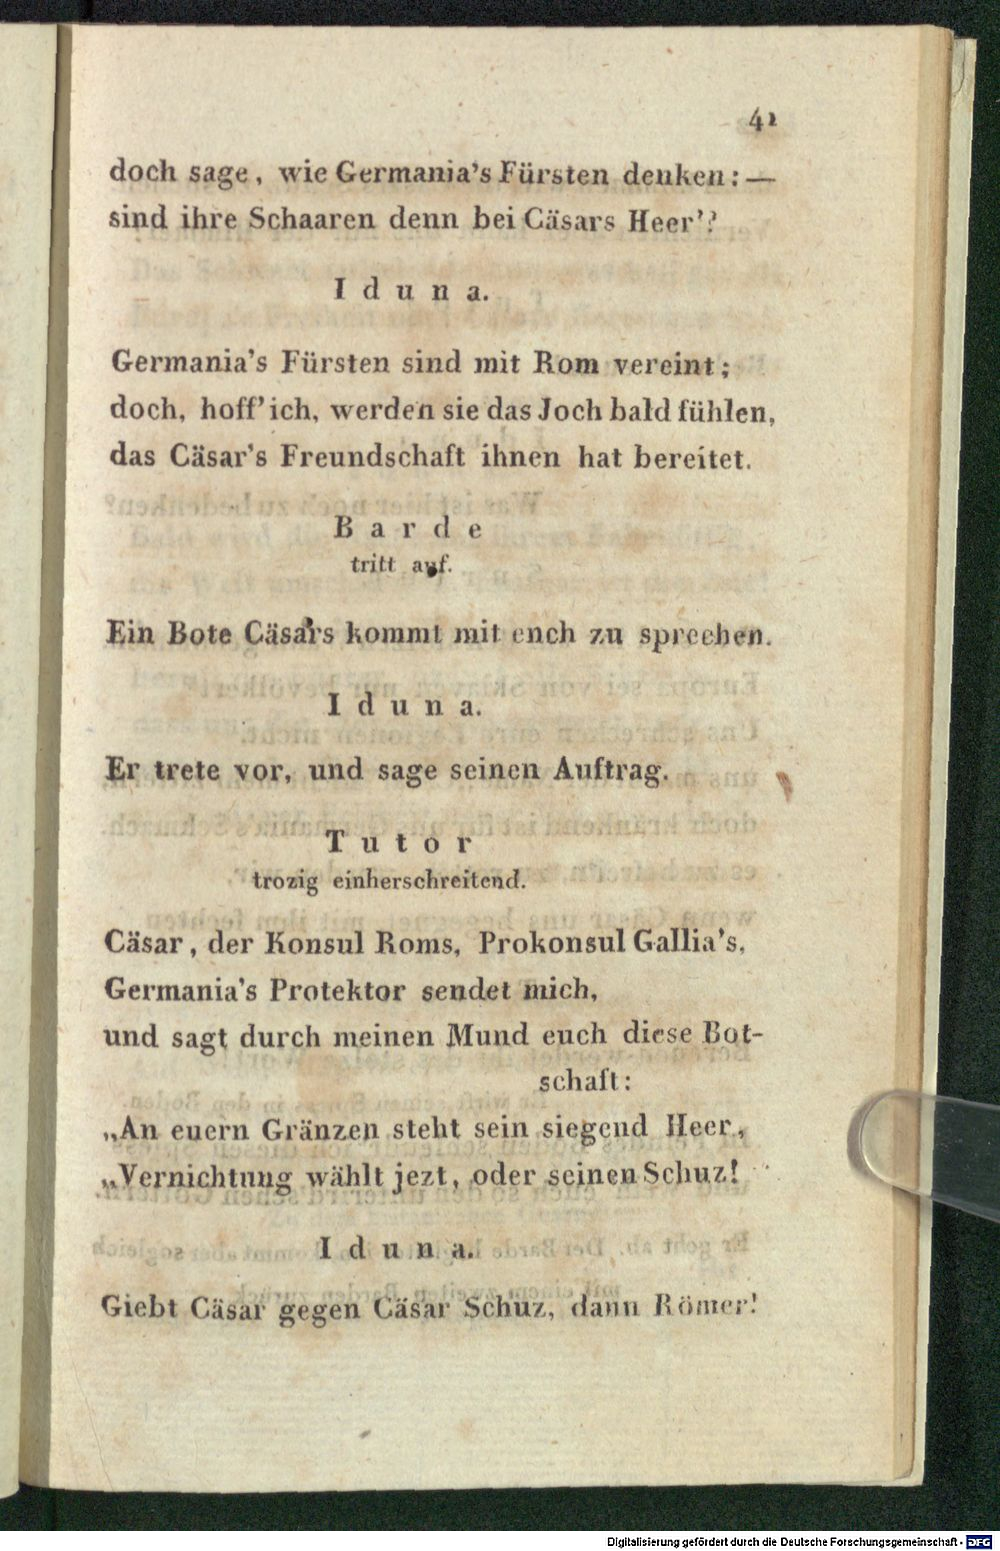 41
doch sage, wie Germania's Fürsten denken: —
sind ihre Schaaren denn bei Cäsars Heer'?
Iduna.
Germania's Fürsten sind mit Rom vereint;
doch, hoff' ich, werden sie das Joch bald fühlen,
das Cäsar's Freundschaft ihnen hat bereitet.
Barde
tritt auf.
Ein Bote Cäsars kommt mit euch zu sprechen.
Iduna.
Er trete vor, und sage seinen Auftrag.
Tutor
trozig einherschreitend.
Cäsar, der Konsul Roms, Prokonsul Gallia's,
Germania's Protektor sendet mich,
und sagt durch meinen Mund euch diese Bot-
schaft:
„An euern Gränzen steht sein siegend Heer,
„Vernichtung wählt jezt, oder seinen Schuz!
Iduna.
Giebt Cäsar gegen Cäsar Schuz, dann Römer!
Digitalisierung gefördert durch die Deutsche Forschungsgemeinschaft - DFG